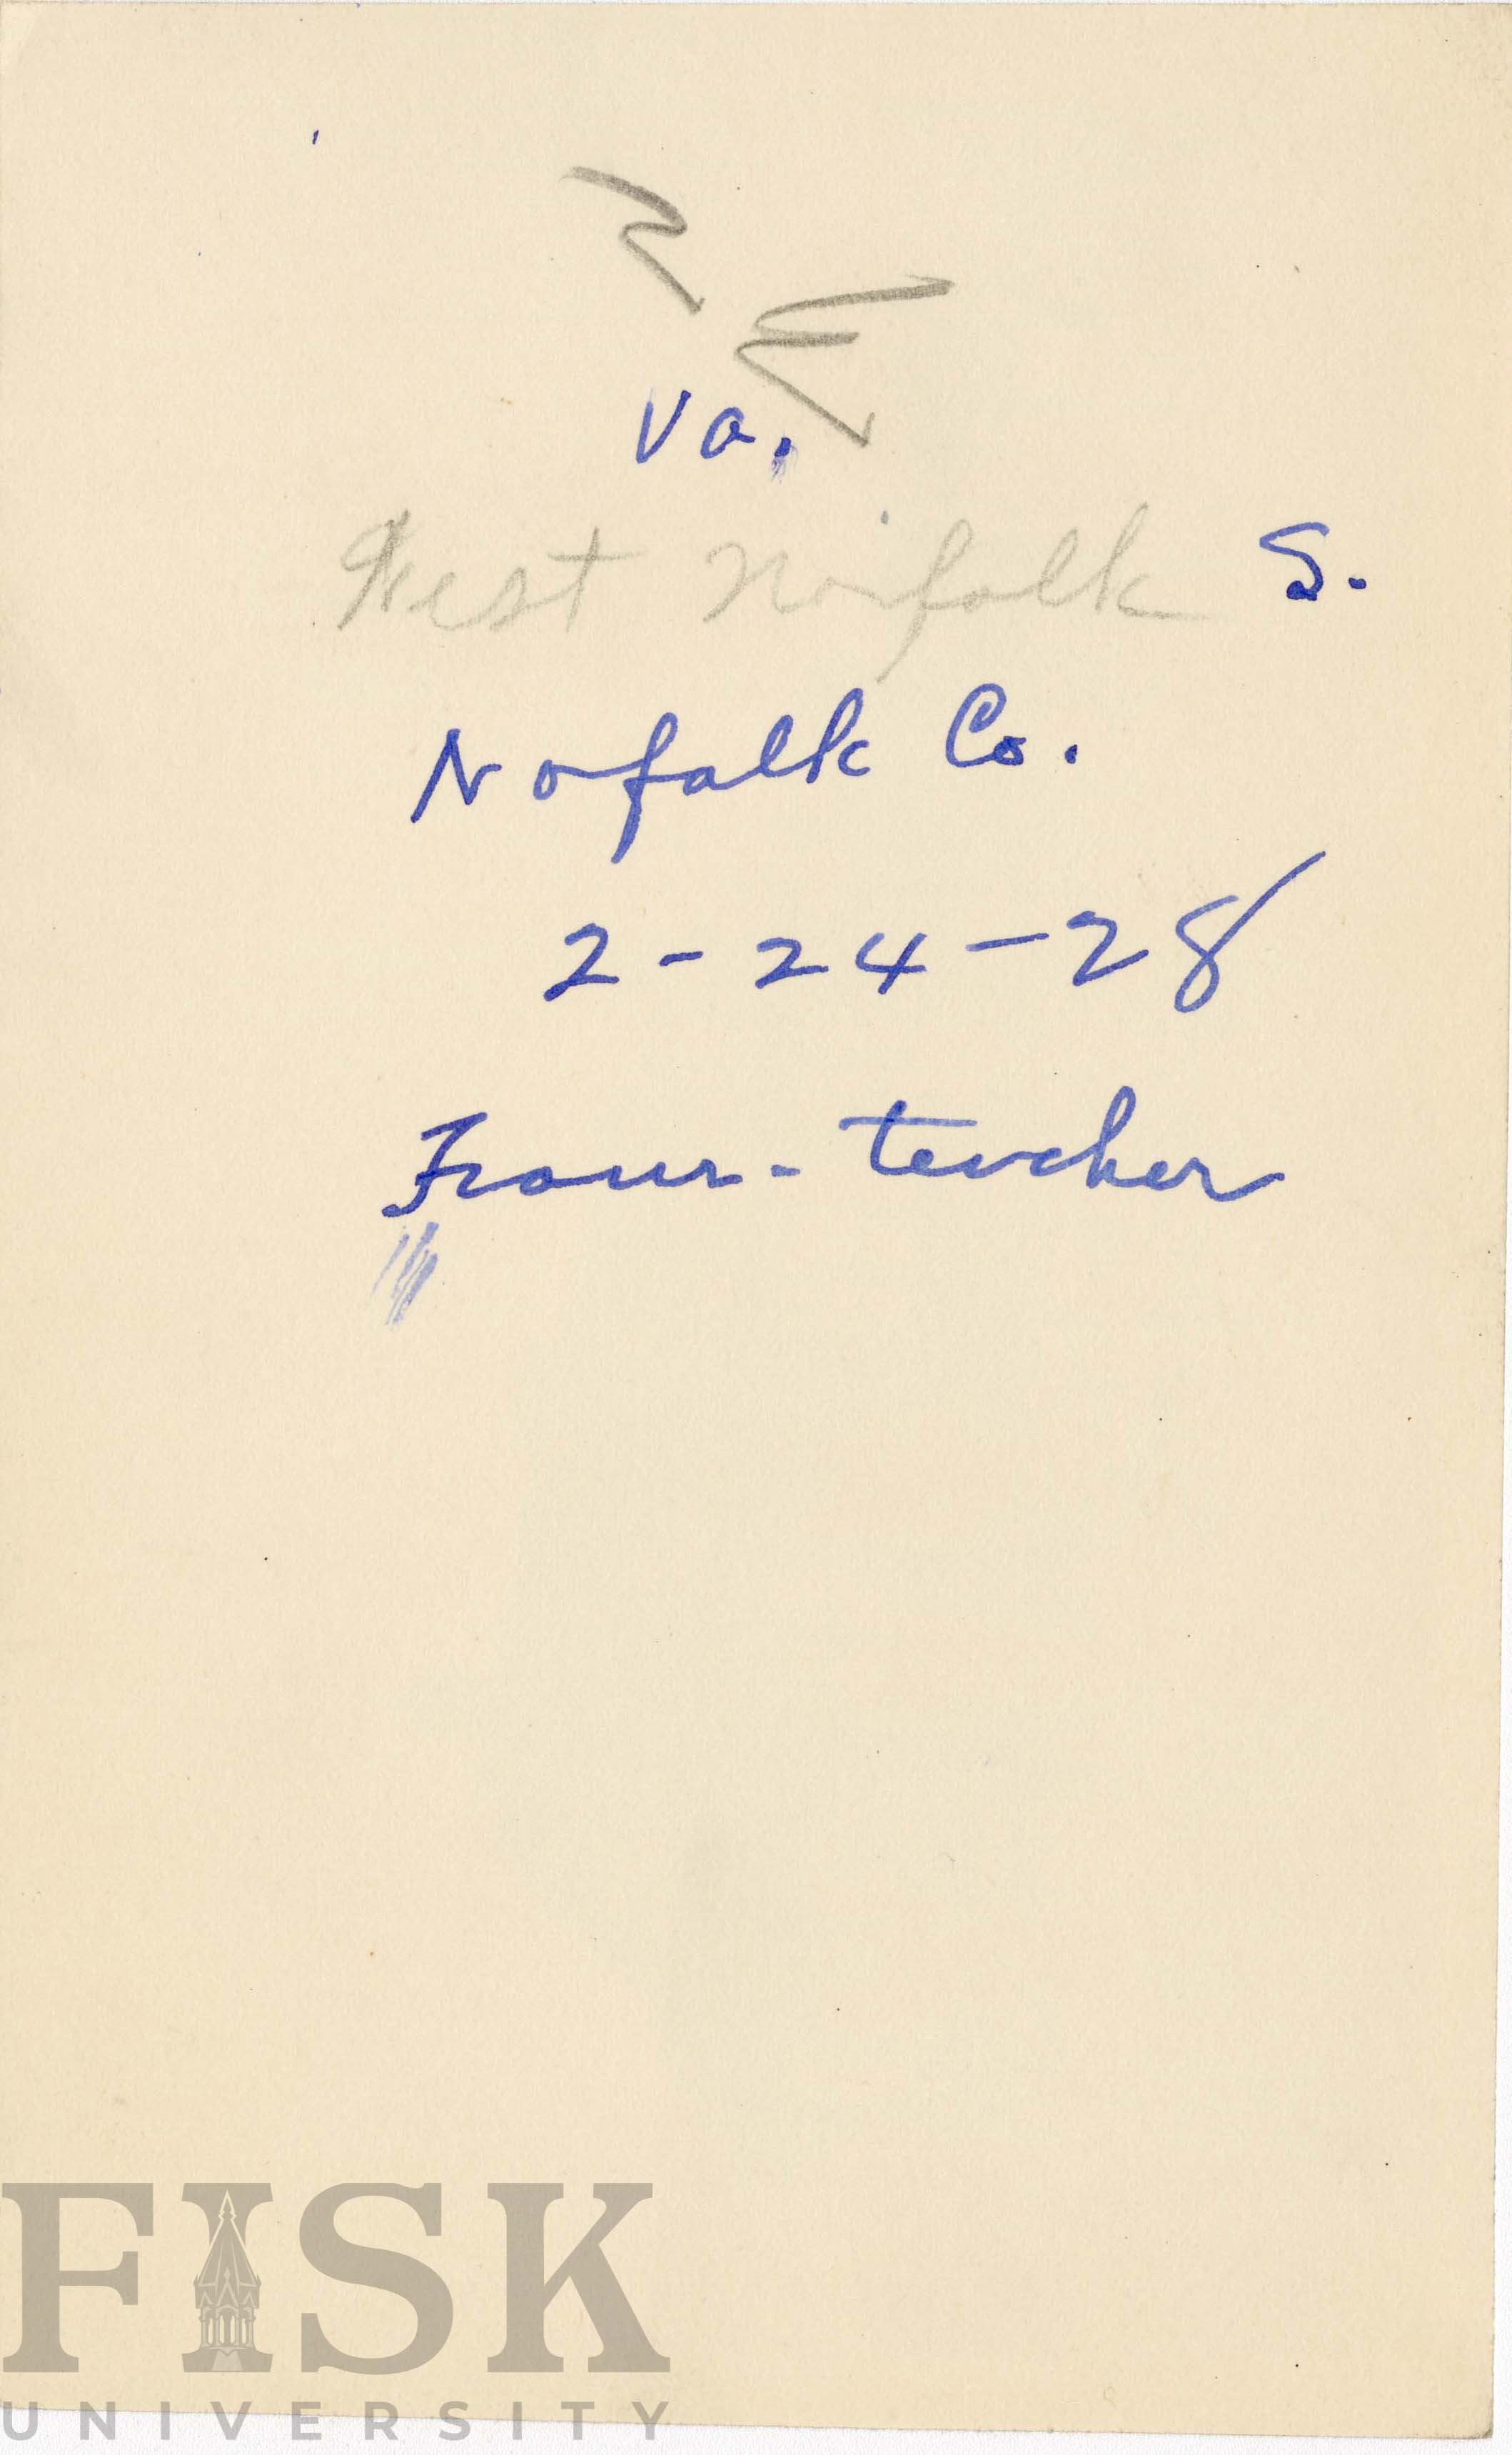 Va.
West Norfolk S.
Norfolk Co.
2-24-28
Four-teacher
FISK
UNIVERSITY